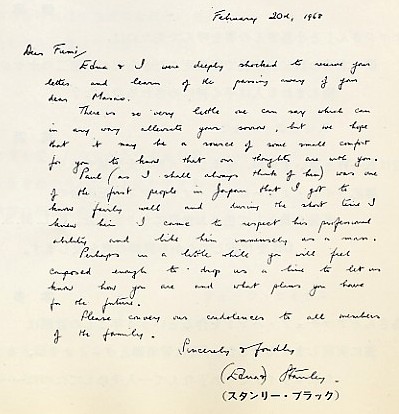 February 20th, 1968
Dear Fumi,
Edna & I were deeply shocked to receive your
letter and learn of the passing away of your
dear Masao.
There is so very little one can say which can
in any way alleviate your sorrow, but we hope
that it may be a source of some small comfort
for you to know that our thoughts are with you.
Paul (as I shall always think of him) was one
of the first people in Japan that I got to
know fairly well and during the short time I
knew him I came to respect his professional
ability and like him immensely as a man.
Perhaps in a little while you will feel
composed enough to drop us a line to let us
know how you are and what plans you have
for the future.
Please convey our condolences to all members
of the family.
Sincerely & fondly
(Edna &) Stanley.
(スタンリー・ブラック)